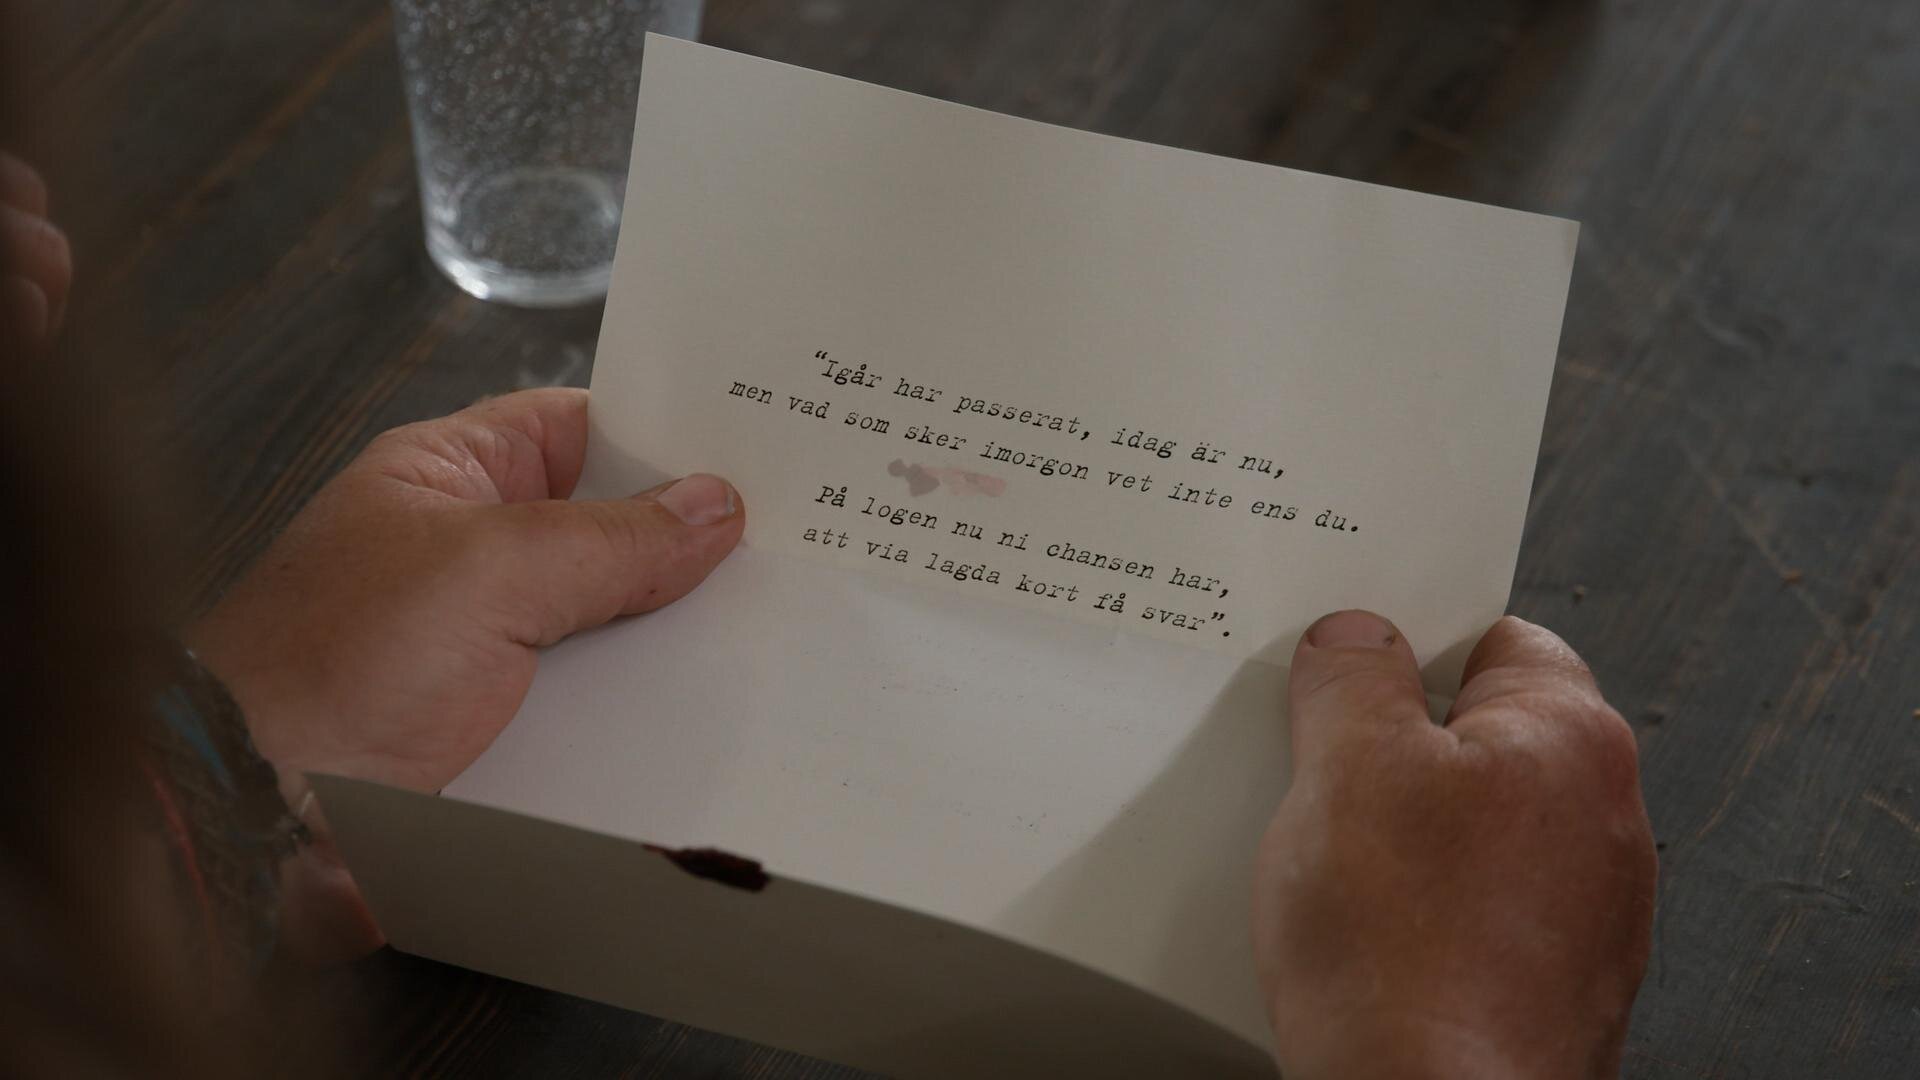 “Igår har passerat, idag är nu,
men vad som sker imorgon vet inte ens du.
På logen nu ni chansen har,
att via lagda kort få svar”.